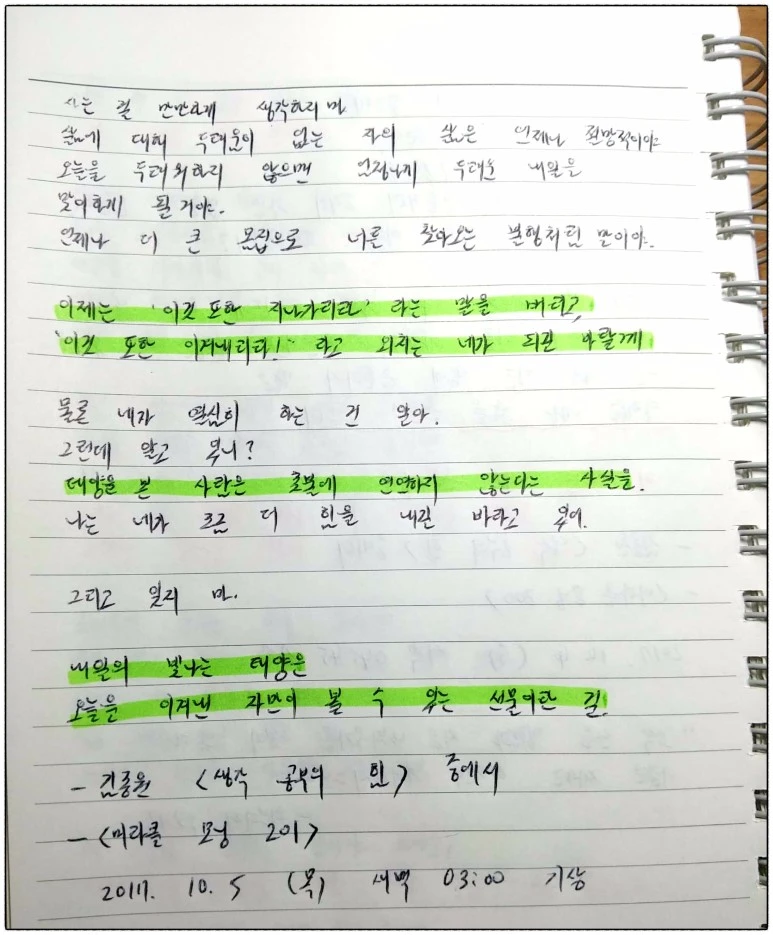 사는 걸 만만하게 생각하지 마.
삶에 대해 두려움이 없는 자의 삶은 언제나 절망적이야.
오늘을 두려워하지 않으면 언젠가 두려운 내일을
맞이하게 될 거야.
언제나 더 큰 몸집으로 너를 찾아오는 불행처럼 말이야.
이제는 '이것 또한 지나가리라' 라는 말을 버리고,
'이것 또한 이겨내리라!' 라고 외치는 네가 되길 바랄게
물론 네가 열심히 하는 건 알아.
그런데 알고 있니?
태양을 본 사람은 촛불에 연연하지 않는다는 사실을.
나는 네가 조금 더 힘을 내길 바라고 있어.
그리고 잊지 마.
내일의 빛나는 태양은
오늘을 이겨낸 자만이 볼 수 있는 선물이란 걸.
- 김종원 <생각 공부의 힘> 중에서
- <미라클 모닝 201>
2017. 10. 5 (목) 새벽 03:00 기상